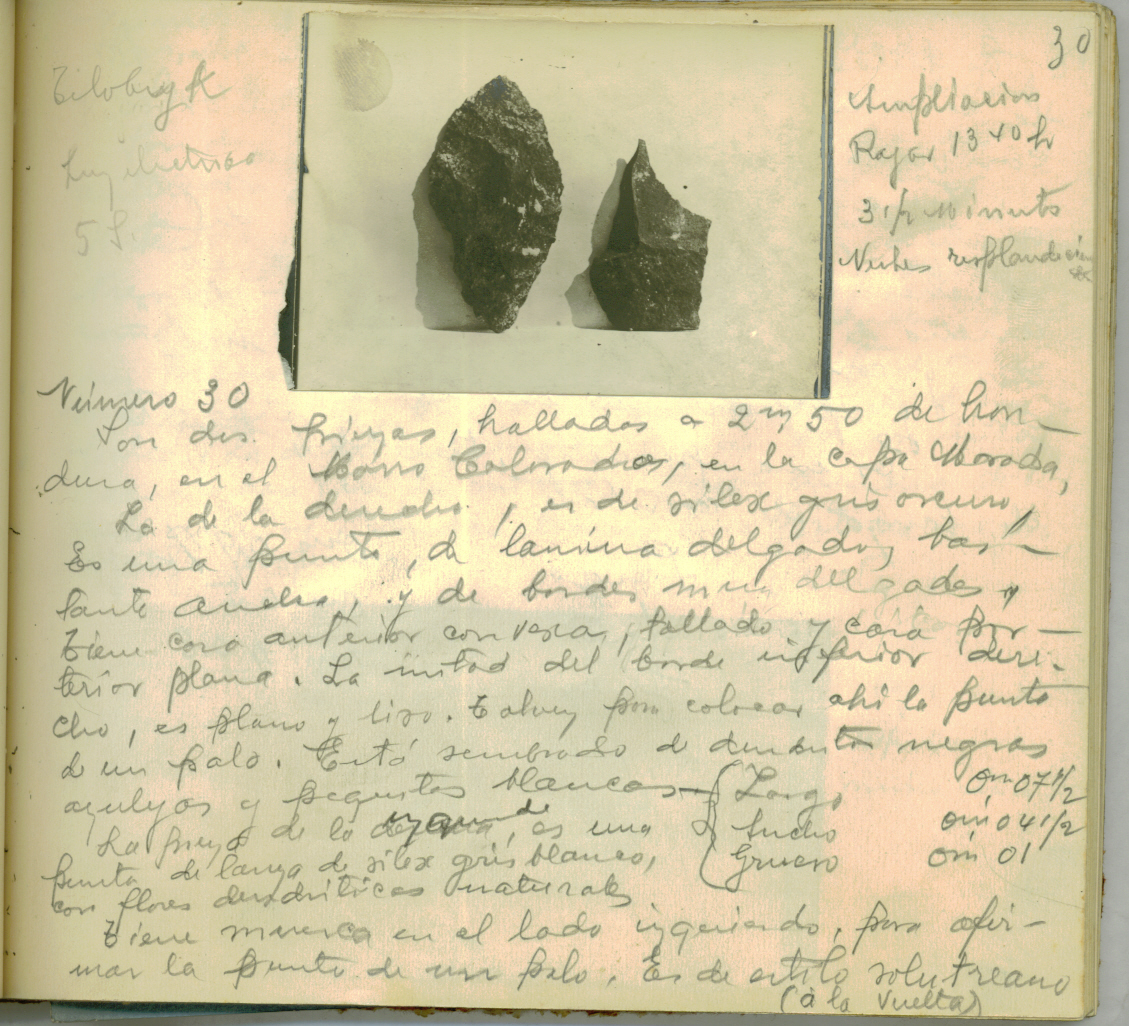 30
Luz
5 S.
Ampliacion
Rajar 13 40 h
3 1/2 Minuto
Nubes
Número 30
Son dos piezas, halladas a 2 m, 50 de hon-
dura, en el Morro Colorados, en la capa Morada,
La de la derecha, es de silex gris oscuro,
Es una punta, de lamina delgada, bas-
tante ancha, y de bordes muy delgados y
Tiene cara anterior convexa, tallado y cara pos-
terior plana. La mitad del borde inferior dere-
cho, es plano y liso. Talvez para colocar ahi la punta
de un palo. Está sembrado de negras
azulejas y pequitas blancas
Largo 0m,07 1/2
Ancho 0m 04 1/2
Grueso 0m 01
La pieza de la izquierda, es una
punta de lanza de silex gris blanco,
con flores dendriticas naturales
Tiene muesca en el lado izquierdo, para afir-
mar la punta de un palo. Es de estilo solutreano
(à la vuelta)